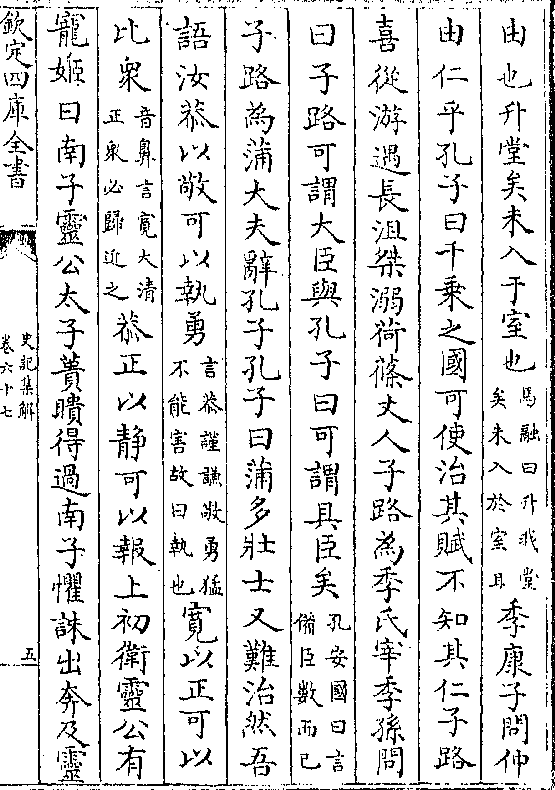 由也升堂矣未入于室也馬融曰升我堂矣未入於室耳季康子問仲
由仁乎孔子曰千乘之國可使治其賦不知其仁子路
喜從游遇長沮桀溺荷蓧丈人子路為季氏宰季孫問
曰子路可謂大臣與孔子曰可謂具臣矣孔安國曰言備臣數而已
子路為蒲大夫辭孔子孔子曰蒲多壯士又難治然吾
語汝恭以敬可以執勇言恭謹謙敬勇猛不能害故曰執也寛以正可以
比衆音鼻言寛大清正衆必歸近之恭正以静可以報上初衛靈公有
寵姬曰南子靈公太子蕢聵得過南子懼誅出奔及靈
欽定四庫全書
史記集解
卷六十七
五